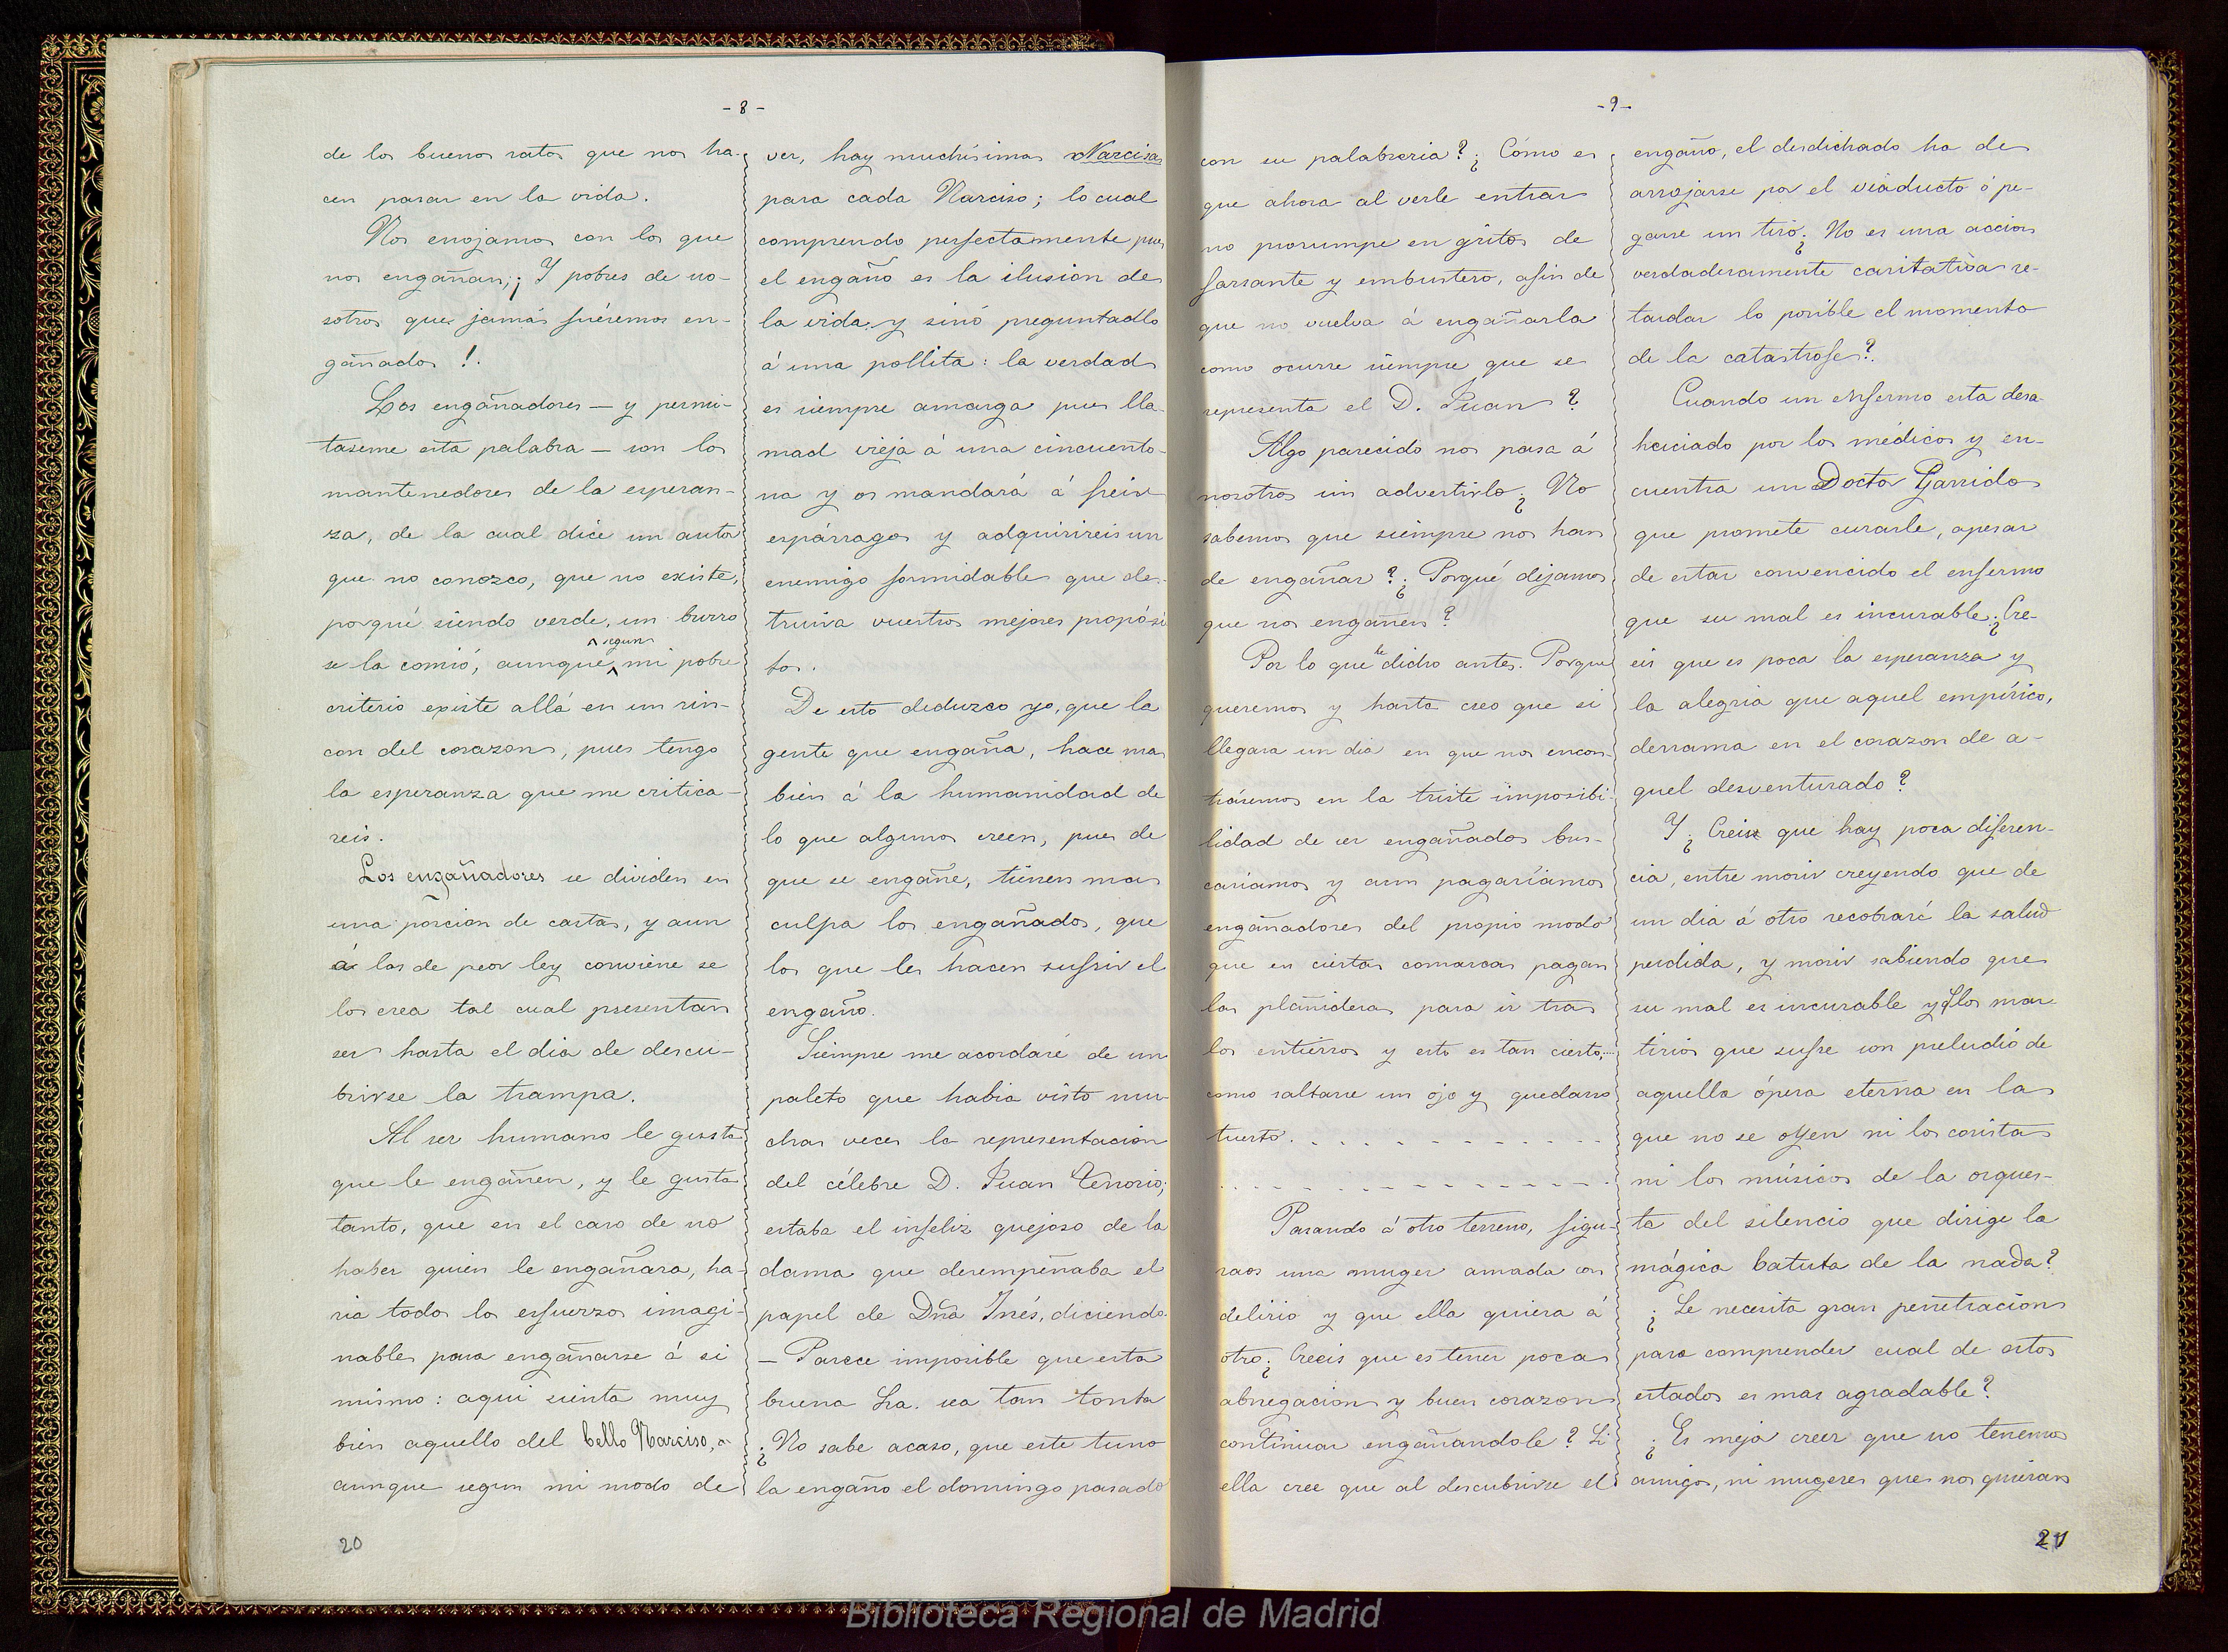 - 8 -
de los buenos ratos que nos ha-
cen pasar en la vida.
Nos enojamos con los que
nos engañan; ¡Y pobres de no-
sotros que jamás fuéremos en-
gañados!.
Los engañadores — y permi-
taseme esta palabra — son los
mantenedores de la esperan-
za, de la cual dice un autor
que no conozco, que no existe,
porqué siendo verde, un burro
se la comió, aunque segun mi pobre
criterio existe allá en un rin-
con del corazon, pues tengo
la esperanza que me critica-
reis.
Los engañadores se dividen en
una porcion de castas, y aun
á las de peor ley conviene se
los crea tal cual presentan
ser hasta el dia de descu-
brirse la trampa.
Al ser humano le gusta
que le engañen, y le gusta
tanto, que en el caso de no
haber quien le engañara, ha-
ria todos los esfuerzos imagi-
nables para engañarse á si
mismo: aqui sienta muy
bien aquello del bello Narciso,
aunque segun mi modo de
20
ver, hay muchísimas Narcisas
para cada Narciso; lo cual
comprendo perfectamente pues
el engaño es la ilusion de
la vida, y sinó preguntadlo
á una pollita: la verdad
es siempre amarga pues lla-
mad vieja á una cincuento-
na y os mandará á freir
espárragos y adquirireis un
enemigo formidable que des-
truira vuestros mejores propósi
tos.
De esto deduzco yo, que la
gente que engaña, hace mas
bien á la humanidad de
lo que algunos creen, pues de
que se engañe, tienen mas
culpa los engañados, que
los que les hacen sufrir el
engaño.
Siempre me acordaré de un
paleto que habia visto mu-
chas veces la representacion
del célebre D. Juan Tenorio;
estaba el infeliz quejoso de la
dama que desempeñaba el
papel de Dña Inés, diciendo.
— Parece imposible que esta
buena Sra. sea tan tonta
¿No sabe acaso, que este tuno
la engaño el domingo pasado
- 9 -
con su palabreria? ¿Cómo es
que ahora al verle entrar
no prorumpe en gritos de
farsante y embustero, afin de
que no vuelva á engañarla
como ocurre siempre que se
representa el D. Juan?
Algo parecido nos pasa á
nosotros sin advertirlo ¿No
sabemos que siempre nos han
de engañar? ¿Porqué dejamos
que nos engañen?
Por lo que he dicho antes. Porque
queremos y hasta creo que si
llegara un dia en que nos encon
trásemos en la triste imposibi
lidad de ser engañados bus-
cariamos y aun pagariamos
engañadores del propio modo
que en ciertas comarcas pagan
las plañideras para ir tras
los entierros y esto es tan cierto,...
como saltarse un ojo y quedarse
tuerto. . . . . . . . . . . .
. . . . . . . . . . . . . . .
Pasando á otro terreno, figu-
raos una muger amada con
delirio y que ella quiera á
otro ¿Creeis que es tener poca
abnegacion y buen corazon
continuar engañandole? Si
ella cree que al descubrirse el
engaño, el desdichado ha de
arrojarse por el viaducto ó pe-
garse un tiro ¿No es una accion
verdaderamente caritativa re-
tardar lo posible el momento
de la catastrofe?.
Cuando un enfermo esta desa-
huciado por los médicos y en-
cuentra un Doctor Garrido
que promete curarle, apesar
de estar convencido el enfermo
que su mal es incurable ¿Cre-
eis que es poca la esperanza y
la alegria que aquel empírico,
derrama en el corazon de a-
quel desventurado?
Y ¿Creis que hay poca diferen-
cia, entre morir creyendo que de
un dia á otro recobraré la salud
perdida, y morir sabiendo que
su mal es incurable y q los mar-
tirios que sufre son preludio de
aquella ópera eterna en la
que no se oyen ni los coristas
ni los músicos de la orques-
ta del silencio que dirige la
mágica batuta de la nada?
¿Se necesita gran penetracion
para comprender cual de estos
estados es mas agradable?
¿Es mejor creer que no tenemos
amigos, ni mugeres que nos quieran
21
Biblioteca Regional de Madrid